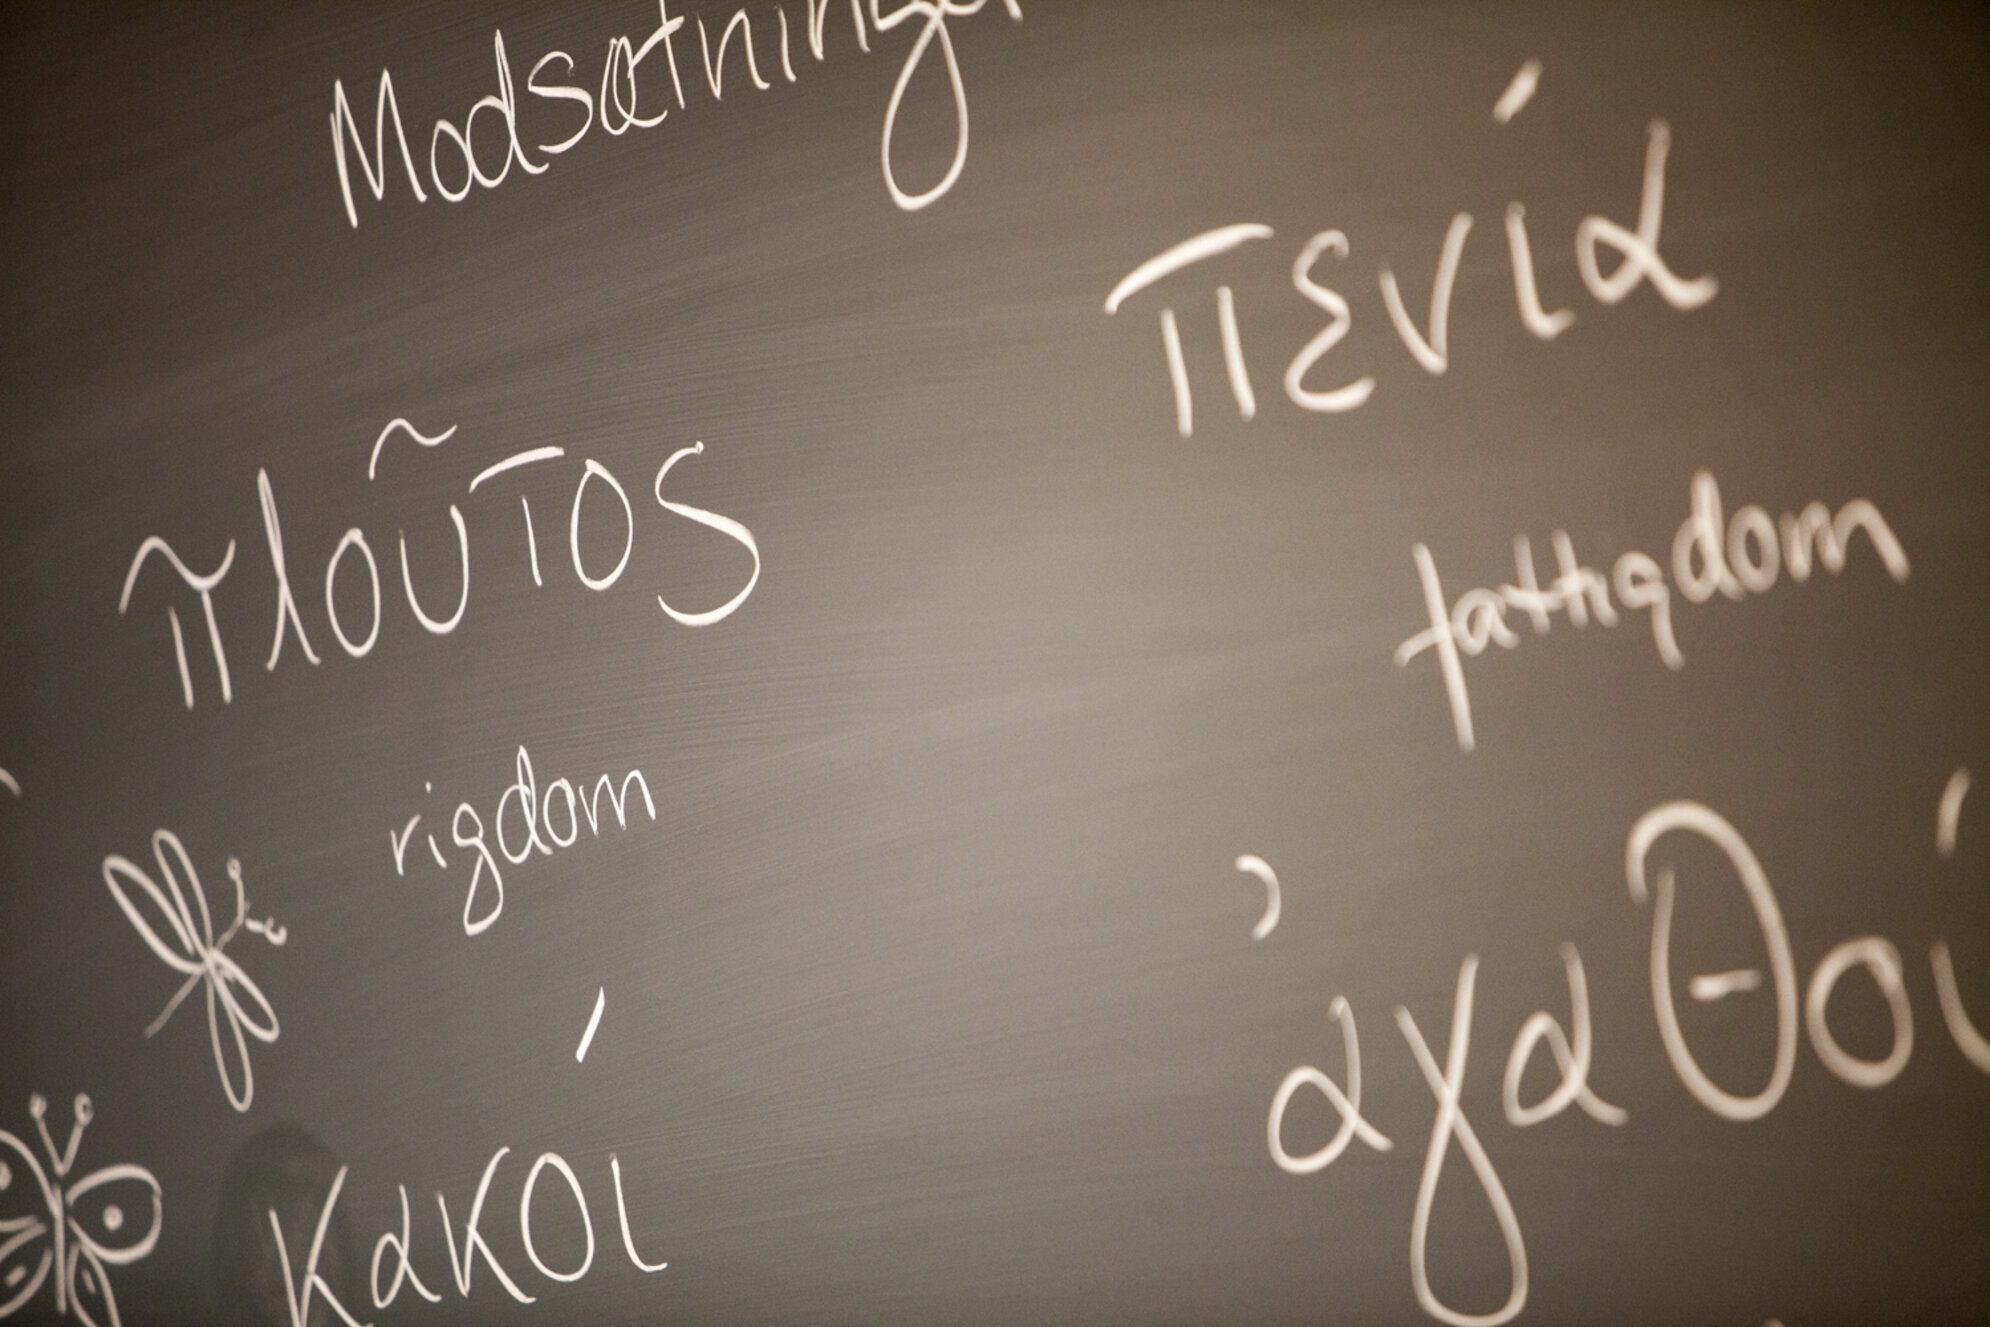 Modsætninger
πλοῦτος πενία
rigdom fattigdom
κακοί ἀγαθοί